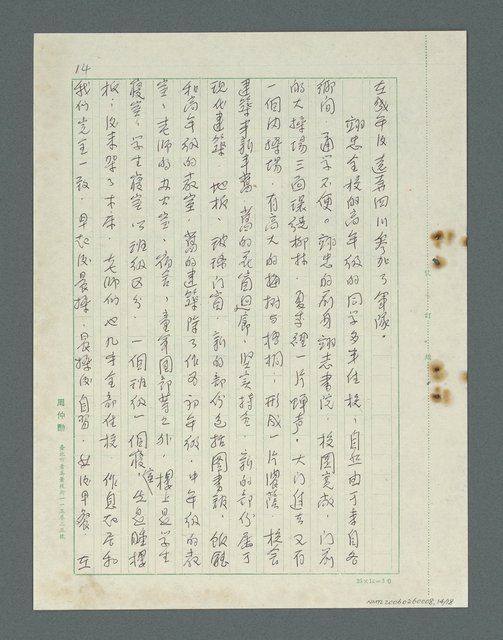 在幾年後遠去四川參加了軍隊。
翊忠全校的高年級的同學多半住校，自然由于來自各
鄉間，通學不便。翊忠的前身翊志書院，校園寬敞，門前
的大操場三面環繞柳林，夏季裡一片蟬聲。大門進去又有
一個內操場，有高大的梅樹与梧桐，形成一片濃蔭。校舍
建築半新半舊，舊的花窗迴廊，堅實持重，新的部份屬于
現代建築，地板，玻璃門窗。新的部份包括圖書館，飯廳
和高年級的教室。舊的建築除了作為初年級，中年級的教
室，老師的办公室，宿舍，童軍團部等之外，樓上是學生
寢室，學生寢室以班級區分，一個班級一個寢室，先是睡樓
板，後來架了木床。老師們也几乎全部住校，作息起居和
我們完全一致，早起後晨操，晨操後自習，然後早餐。在
14
周仲勳
25×12=300
NMTL20060260008_14/18